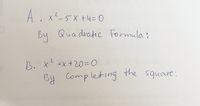 A. x²-5x+4=0
By Quadratic Formula:
B. x² +x+20=0
By Completing the square: